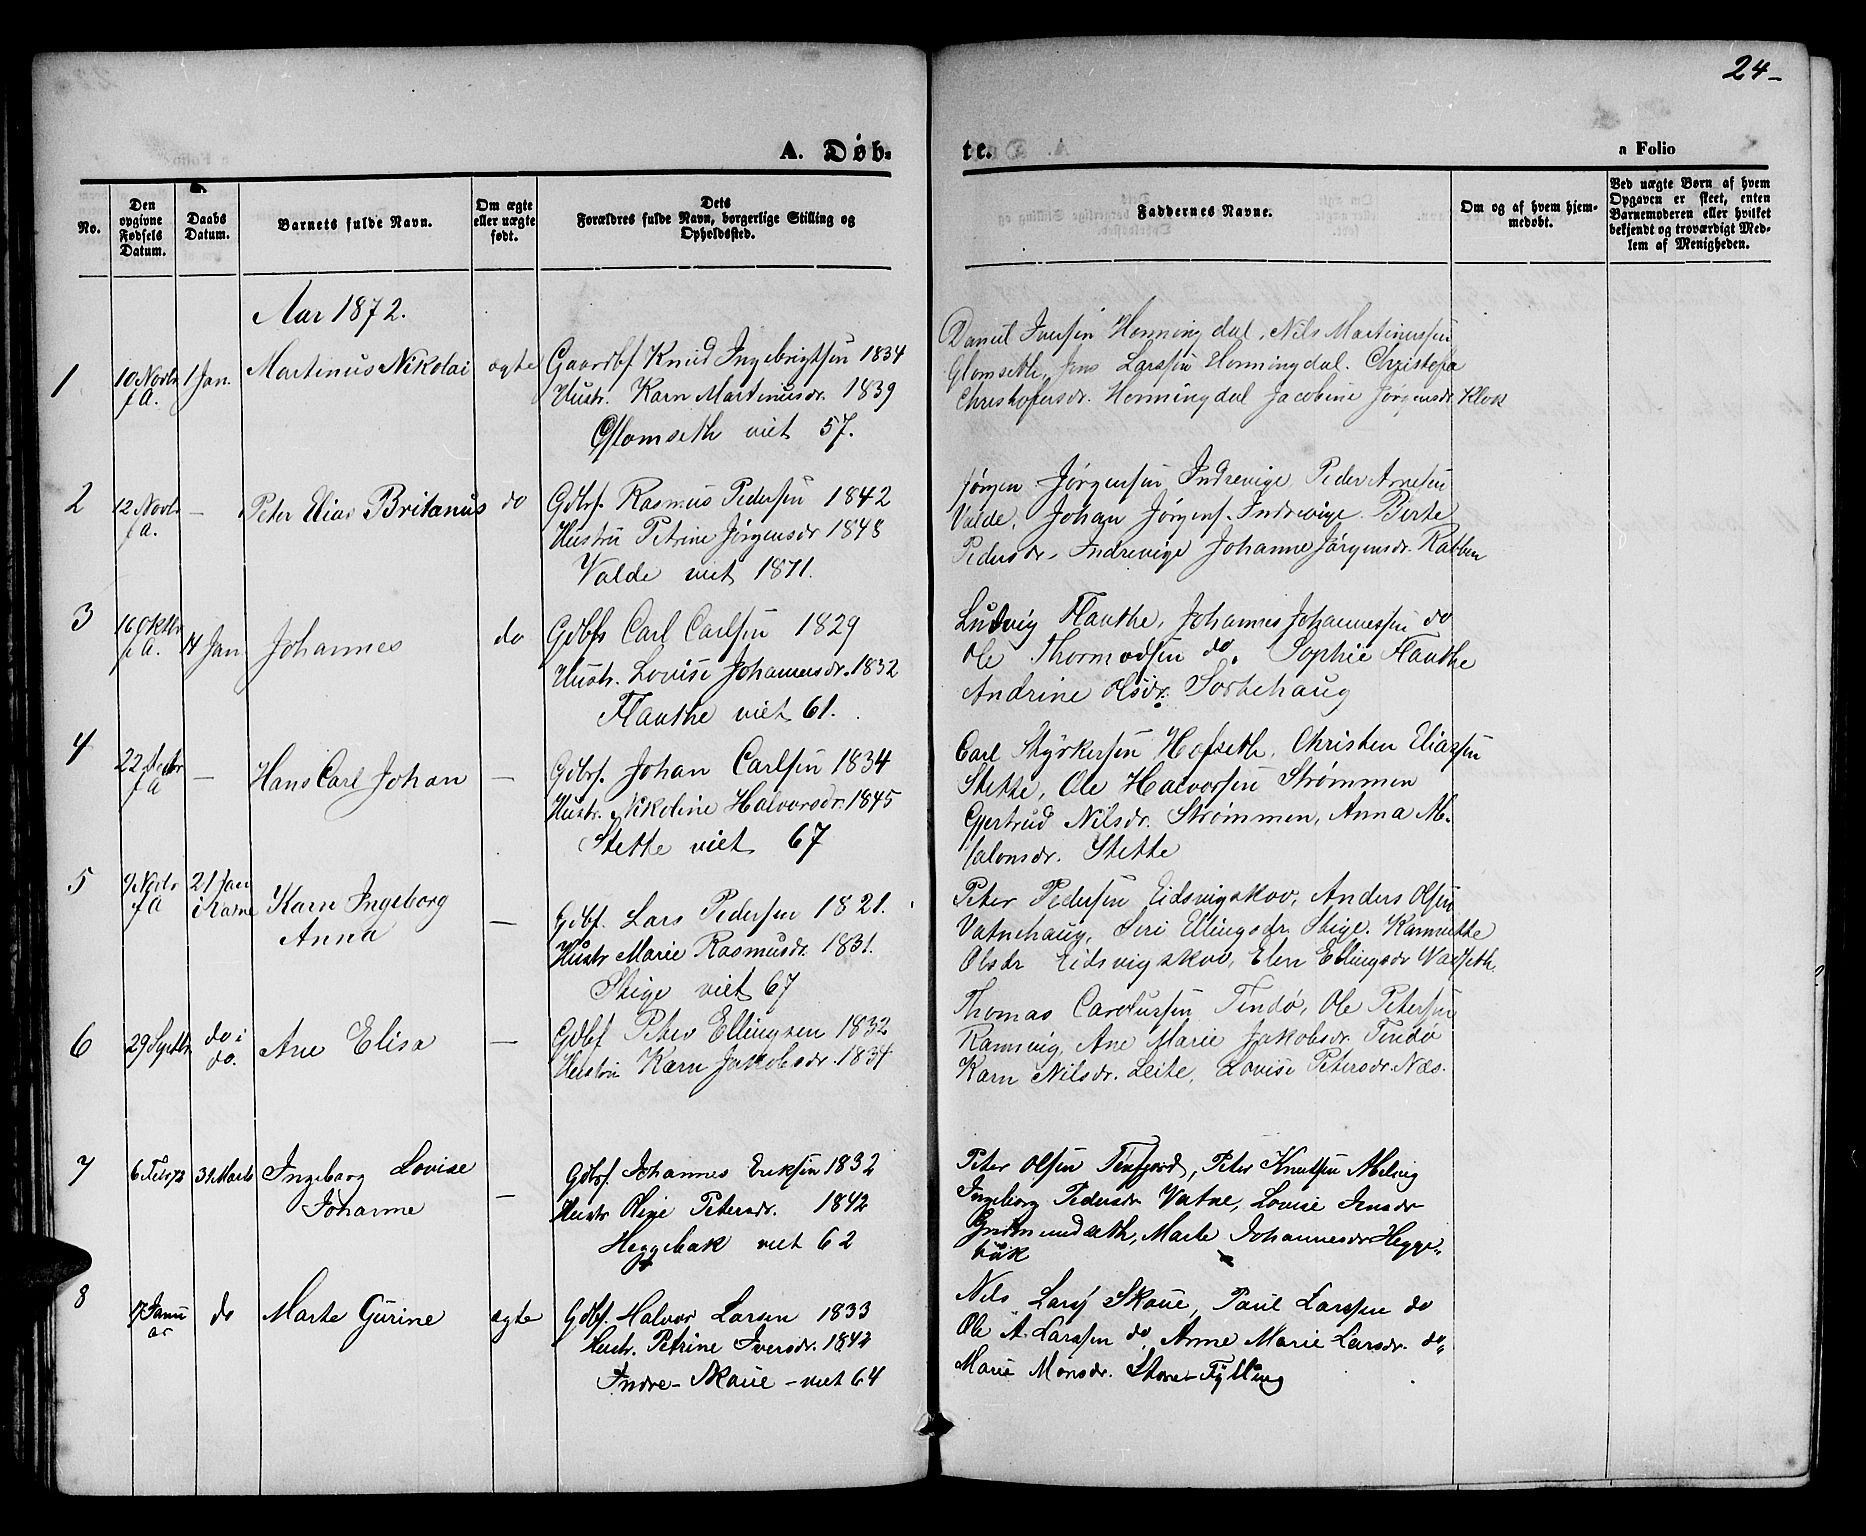 24-
A. Døb-
te.
a Folio
No.
Den opgivne Fødsels Datum.
Daabs Datum.
Barnets fulde Navn.
Om ægte eller uægte født.
Dets Forældres fulde Navn, borgerlige Stilling og Opholdssted.
Faddernes Navne.
Om og af hvem hjemmedøbt.
Ved uægte Børn af hvem Opgaven er skeet, enten Barnemoderen eller hvilket bekjendt og troværdigt Medlem af Menigheden.
Aar 1872.
1
10 Novbr f A.
1 Jan.
Martinus Nikolai
ægte
Gaardbf Knud Ingebrigtsen 1834
Hustr. Karn Martinusdr. 1839
Glomseth viet 57.
Daniel Iversen Honningdal, Nils Martinussen
Glomseth, Jens Larssen Honningdal. Christofa
Christofersdr. Honningdal Jacobine Jørgensdr Klok
2
12 Novbr f A.
-
Peter Elias Britanus
do
Gdbrf. Rasmus Pedersen 1842
Hustru Petrine Jørgensdr 1848
Valde viet 1871.
Jørgen Jørgensen Indrevige Peder Arnesen
Valde. Johan Jørgens. Indrevige. Birte
Pedersdr. Indrevige Johanne Jørgensdr. Rabben
3
16 Oktbr f A.
14 Jan
Johannes
do
Gdbfs Carl Carlsen 1829
Hustr. Lovise Johannesdr. 1832
Flauthe viet 61.
Ludvig Flauthe, Johannes Johannessen do
Ole Thormodsen do. Sophie Flauthe
Andrine Olsdr. Sortehaug
4
22 f A
-
Hans Carl Johan
-
Gdbrf. Johan Carlsen 1834
Hustr. Nikoline Halvorsdr. 1845
Stette viet 67
Carl Styrkersen Hofseth. Christen Eliassen
Stette, Ole Halvorsen Strømmen
Gjertrud Nilsdr. Strømmen, Anna M.
Valonsdr. Stette
5
9 Novbr f A
21 Jan i
Karn Ingeborg
Anna
-
Gdbf. Lars Pedersen 1821.
Hustr Marie Rasmusdr. 1831.
Stige viet 67
Peter Pedersen Eidsvigskov, Anders Olsen
Vatnehaug, Seri Ellingsdr. Stige. Karnutte
Olsdr Eidsvigskov, Elen Ellingsdr
6
29 Septbr
do i do.
Ane Elisa
-
Gdbf Peter Ellingsen 1832
Hustru Karn Jakobsdr. 1834
Thomas Carolussen Tindø, Ole Petersen
Ramsvig, Ane Marie Jakobsdr. Tindø
Karn Nilsdr. Leite, Lovise Petersdr. Næs.
7
6
31 Marts
Ingeborg Lovise
Johanne
-
Gdbrf. Johannes Eriksen 1832
Hustr Oline Petersdr. 1842
Heggebak viet 62
Peter Olsen Tenfjord, Peter Knutsen
Ingeborg Pedersdr. Vatne, Lovise Jensdr
Gudmundsæth, Marte Johannesdr Hegge-
bak
8
17 Januar
do
Marte Gurine
ægte
Gdbf. Halvor Larsen 1833
Hustr. Petrine Iversdr. 1842
Indre-Skaue - viet 64
Nils Lars. Skaue, Paul Larssen do
Ole A. Larssen do, Anne Marie Larsdr. do,
Marie Monsdr. Store-Fylling